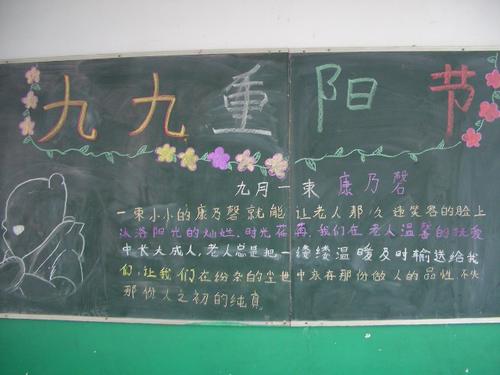 九九重阳节
九月一束 康乃磬
一束小小的康乃磬就能让老人那久违笑容的脸上
从洛阳光的灿烂,时光花再,我们在老人温馨的抚爱
中长大成人,老人总是把一缕缕温暖及时输送给我
们,让我们在纷杂的尘世中永存那份做人的品性,不失
那份人之初的纯真